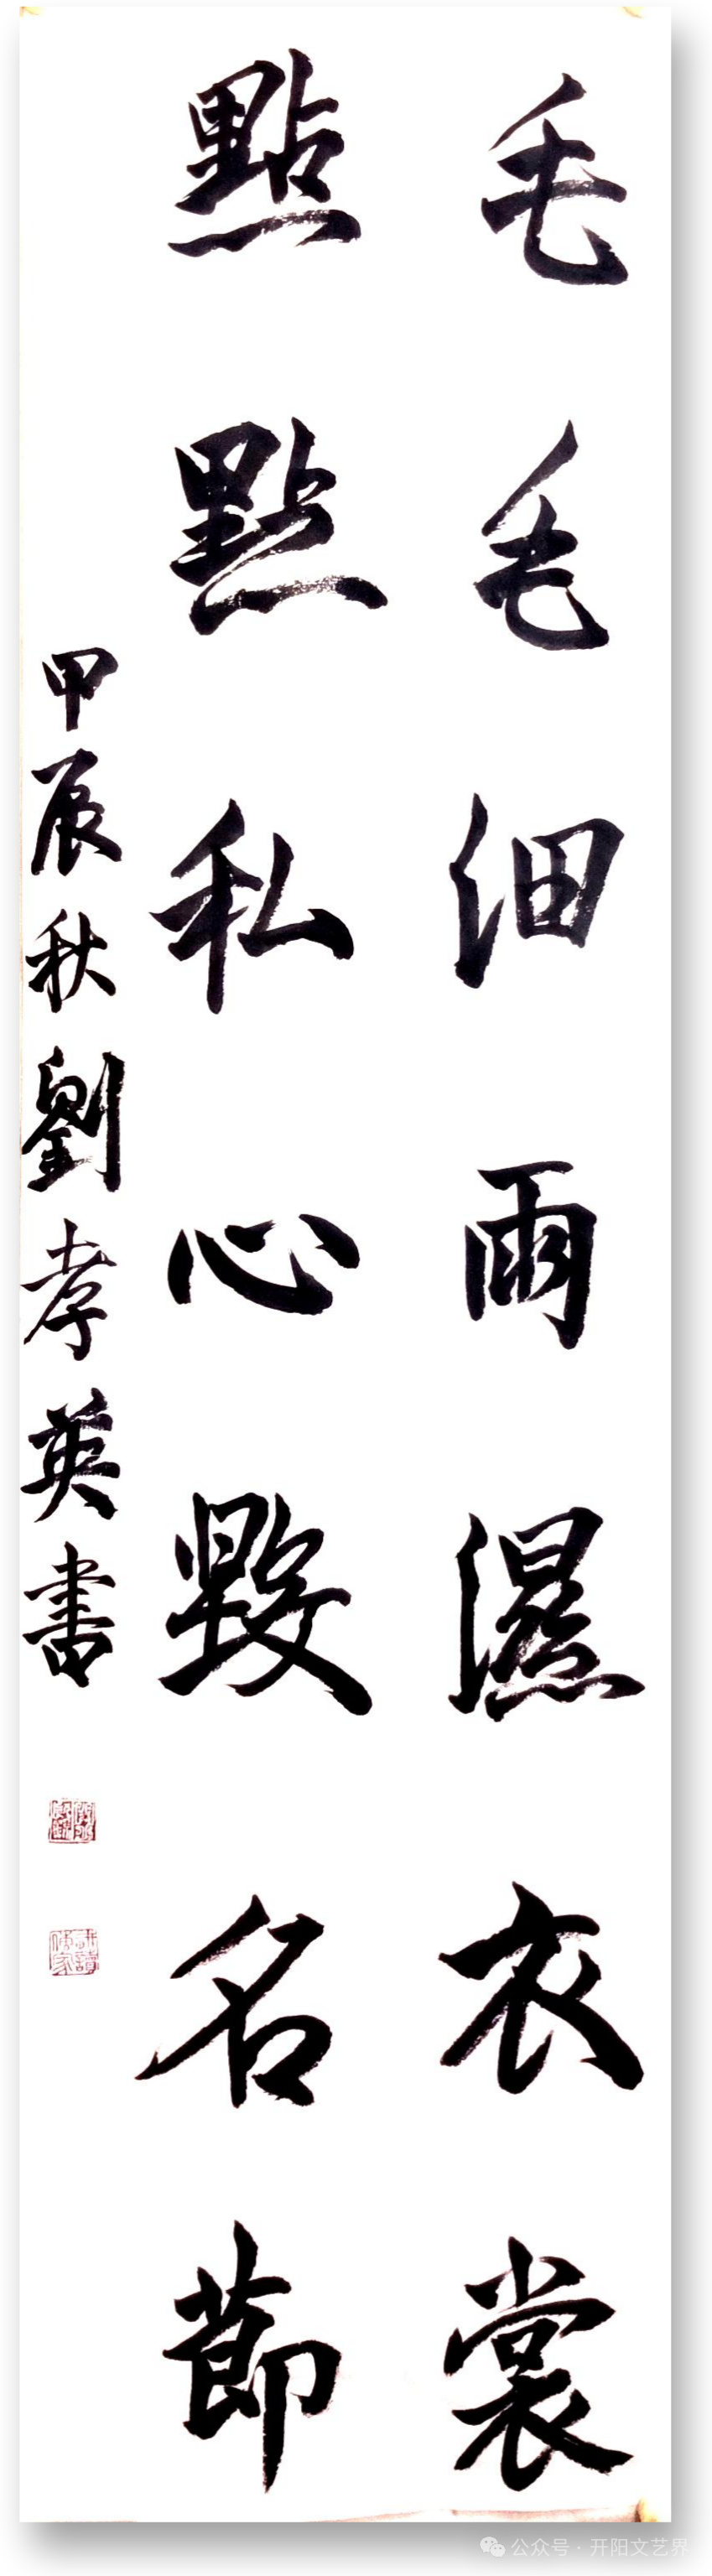 毛毛細雨濕衣裳
點點私心毀名節
甲辰秋劉孝英書
公众号·开阳文艺界